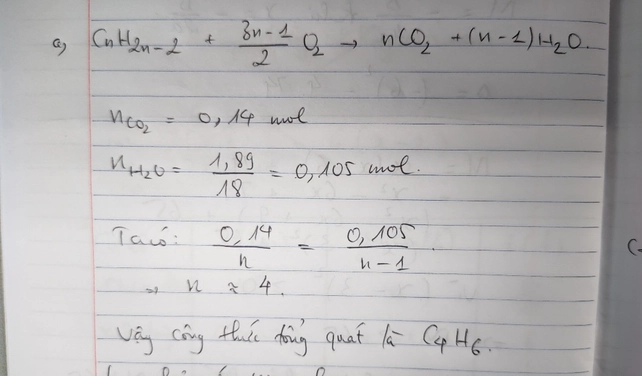 a) CnH2n-2 + 3n-1/2 O2 → nCO2 + (n-1)H2O.
nCO2 = 0,14 mol
nH2O = 1,89/18 = 0,105 mol.
Ta có: 0,14/n = 0,105/n-1.
→ n ≈ 4.
Vậy công thức tổng quát là C4H6.